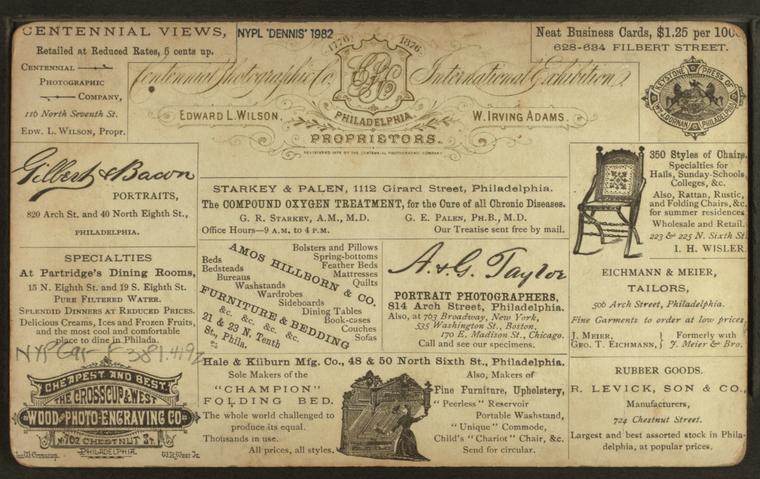 CENTENNIAL VIEWS,
Retailed at Reduced Rates, 5 cents up.
CENTENNIAL
PHOTOGRAPHIC
COMPANY,
116 North Seventh St.
EDW. L. WILSON, Propr.
NYPL "DENNIS" 1982
1776 1876
CPC
Centennial Photographic Co. International Exhibition
EDWARD L. WILSON. PHILADELPHIA. W. IRVING ADAMS.
PROPRIETORS.
REGISTERED 1876 BY THE CENTENNIAL PHOTOGRAPHIC COMPANY
Neat Business Cards, $1.25 per 100
628-634 FILBERT STREET.
KEYSTONE PRESS OF
WM. J. DORNAN, PHILADA
Gilbert & Bacon
PORTRAITS,
820 Arch St. and 40 North Eighth St.,
PHILADELPHIA.
STARKEY & PALEN, 1112 Girard Street, Philadelphia.
The COMPOUND OXYGEN TREATMENT, for the Cure of all Chronic Diseases.
G. R. STARKEY, A.M., M.D. G. E. PALEN, PH.B., M.D.
Office Hours—9 A.M. to 4 P.M. Our Treatise sent free by mail.
350 Styles of Chairs.
Specialties for
Halls, Sunday-Schools
Colleges, &c.
Also, Rattan, Rustic,
and Folding Chairs, &c.
for summer residences
Wholesale and Retail.
223 & 225 N. Sixth St
I. H. WISLER.
SPECIALTIES
At Partridge's Dining Rooms,
15 N. Eighth St. and 19 S. Eighth St.
PURE FILTERED WATER.
SPLENDID DINNERS AT REDUCED PRICES.
Delicious Creams, Ices and Frozen Fruits,
and the most cool and comfortable
place to dine in Philada.
AMOS HILLBORN & CO.
FURNITURE & BEDDING
&c. &c. &c. &c.
21 & 23 N. Tenth
St., Phila.
Beds
Bedsteads
Bureaus
Washstands
Wardrobes
Sideboards
Dining Tables
Book-cases
Couches
Sofas
Bolsters and Pillows
Spring-bottoms
Feather Beds
Mattresses
Quilts
A. & G. Taylor
PORTRAIT PHOTOGRAPHERS,
814 Arch Street, Philadelphia.
Also, at 763 Broadway, New York,
535 Washington St., Boston.
170 E. Madison St., Chicago.
Call and see our specimens.
EICHMANN & MEIER,
TAILORS,
506 Arch Street, Philadelphia.
Fine Garments to order at low prices
J. MEIER, } Formerly with
GEO. T. EICHMANN, } J. Meier & Bro.
CHEAPEST AND BEST.
THE CROSSCUP & WEST
WOOD AND PHOTO-ENGRAVING CO
No 702 CHESTNUT ST.
PHILADELPHIA
Hale & Kilburn Mfg. Co., 48 & 50 North Sixth St., Philadelphia.
Sole Makers of the
"CHAMPION"
FOLDING BED.
The whole world challenged to
produce its equal.
Thousands in use.
All prices, all styles.
Also, Makers of
Fine Furniture, Upholstery,
"Peerless" Reservoir
Portable Washstand,
"Unique" Commode,
Child's "Chariot" Chair, &c.
Send for circular.
RUBBER GOODS.
R. LEVICK, SON & CO.,
Manufacturers,
724 Chestnut Street.
Largest and best assorted stock in Phila-
delphia, at popular prices.